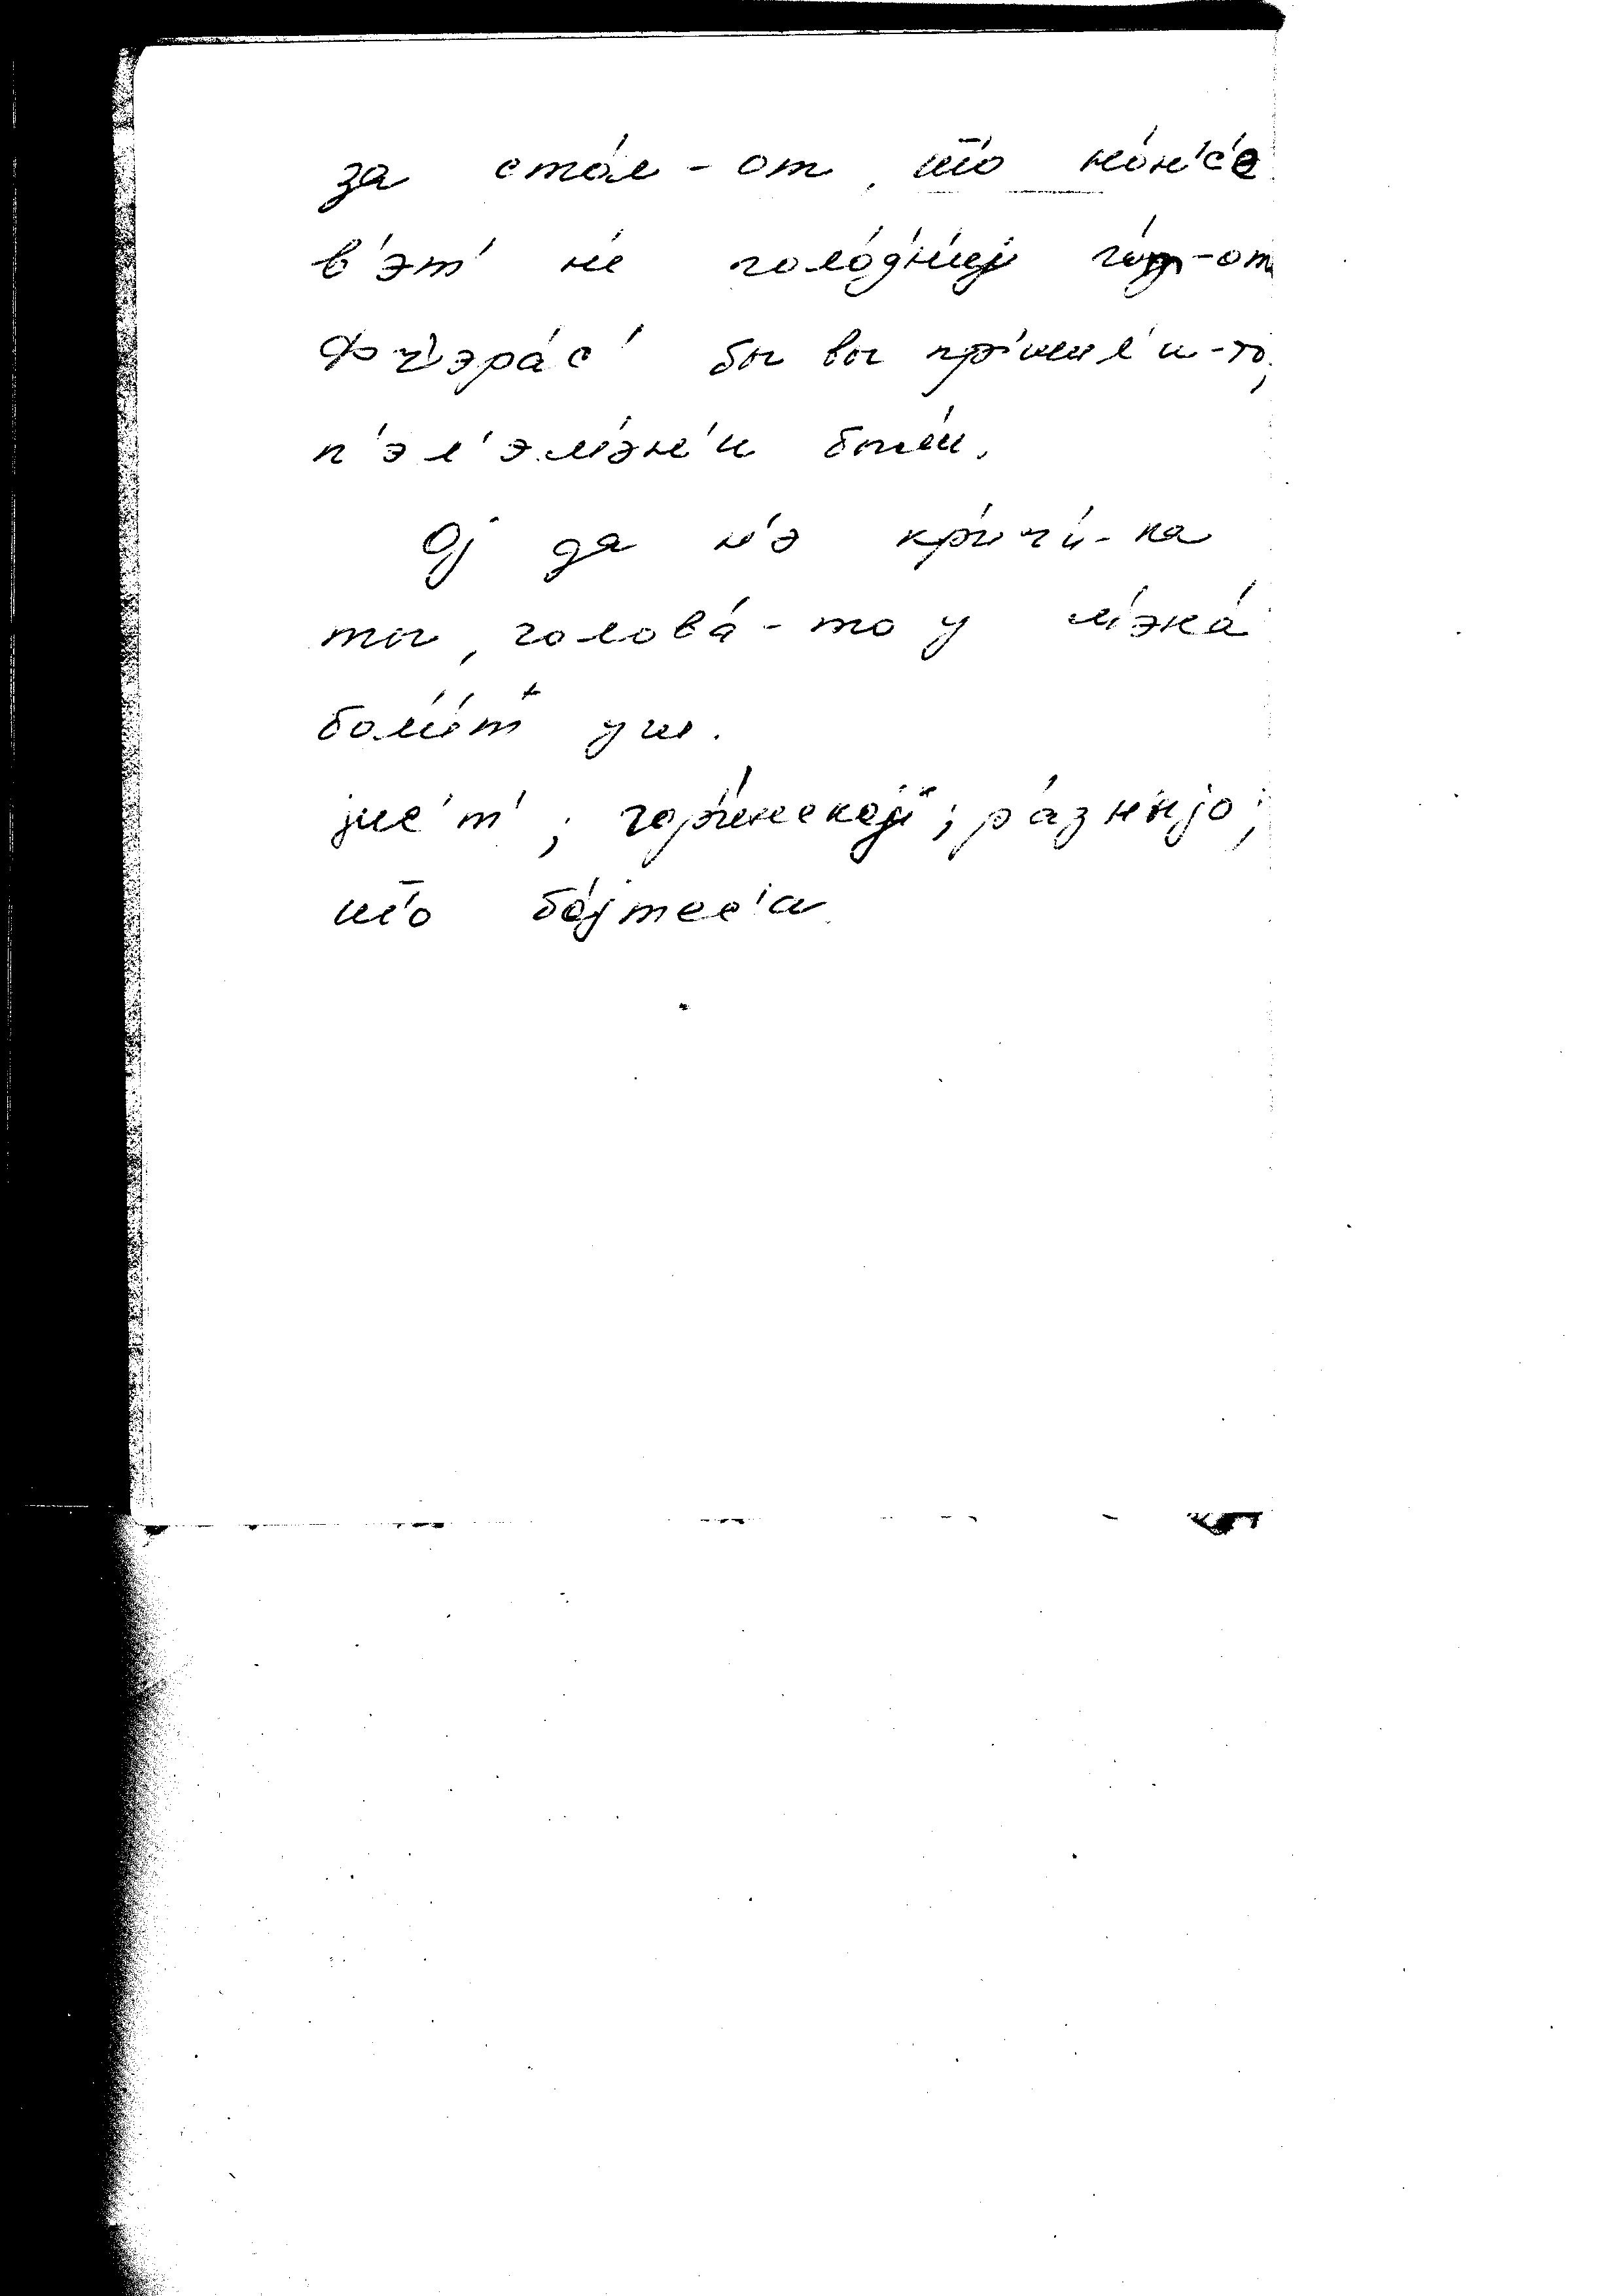 за сто́л-от, што но́н'с'е
в'эт' н'е голо́дн'иј го́д-от
фч'эра́с' бы вы пр'ишл'и-то,
п'эл'эм'эн'и был'и.
Ој да н'э кр'ич'и́-ка
ты, голова́-то у м'эн'а́
бол'и́т уш.
јие'т'; гор'енској; ра́зн'ијо;
што бо́јтес'а